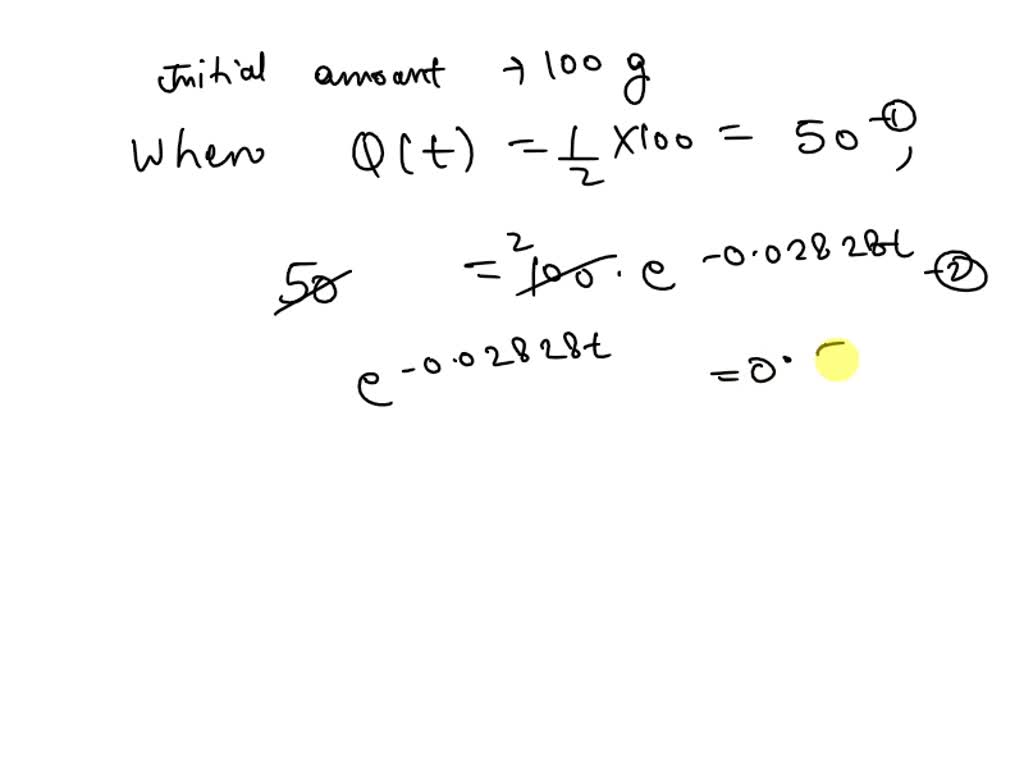 Initial amount → 100 g
When Q(t) = 1/2 × 100 = 50 -①,
50 = 2 100 · e^-0.02828t -②
e^-0.02828t = 0.